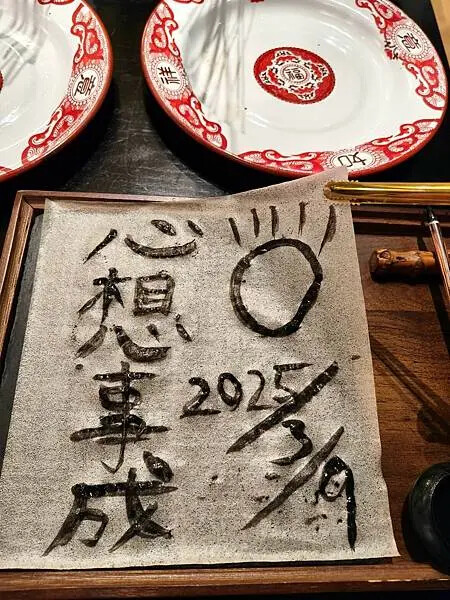 心想事成
2025/3/9